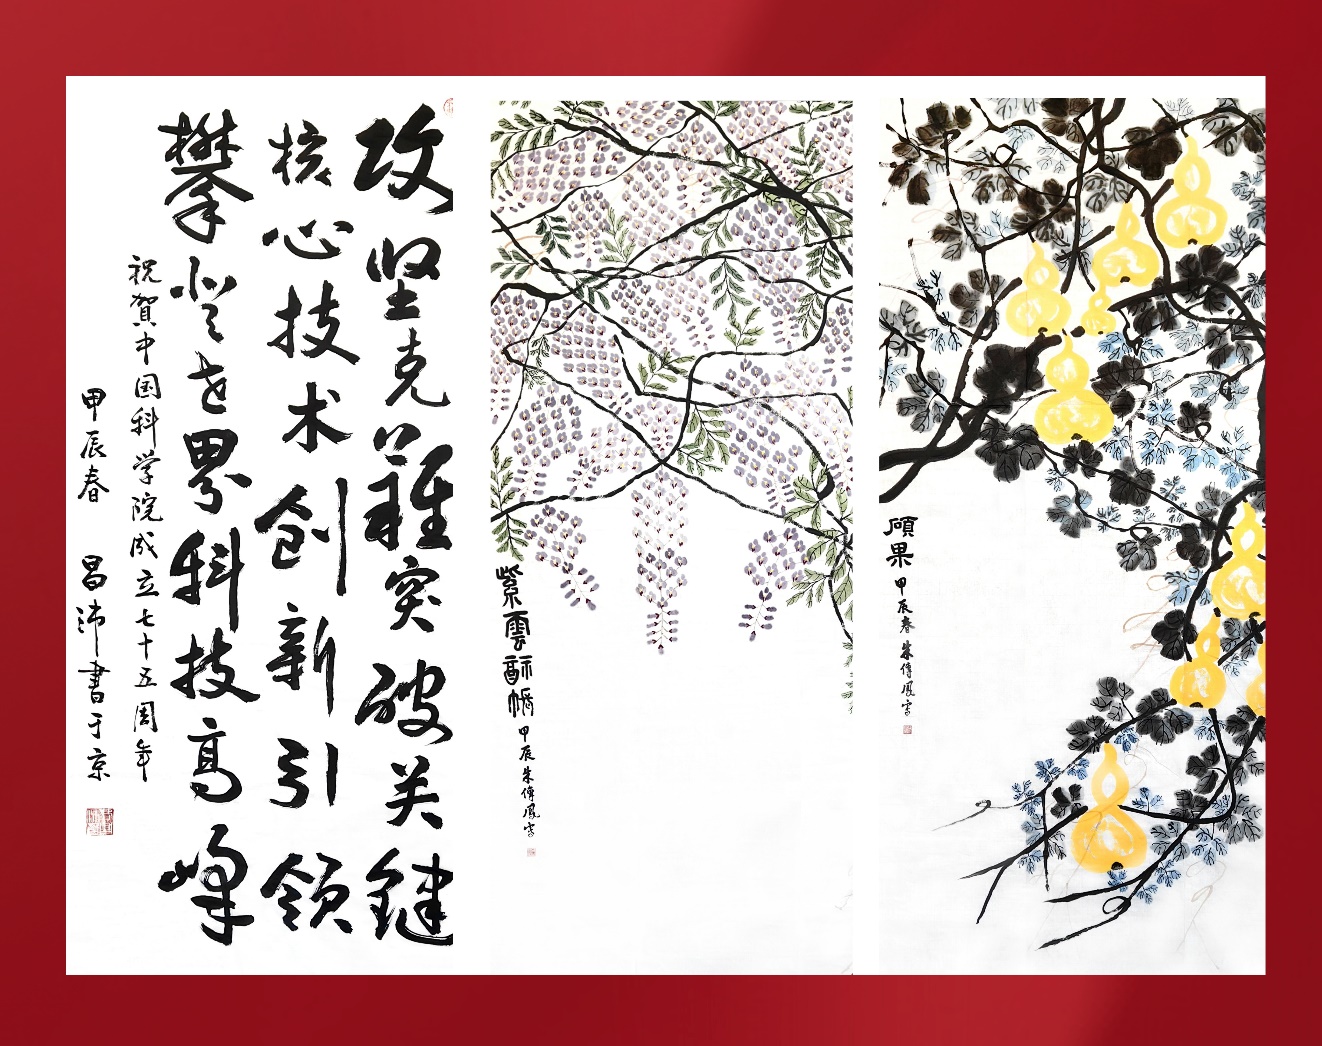 攻坚克難突破关键
核心技术创新引领
攀登世界科技高峰
祝賀中国科学院成立七十五周年
甲辰春 昌沛書于京
紫雲
甲辰朱傳鳳寫
碩果
甲辰春朱傳鳳寫